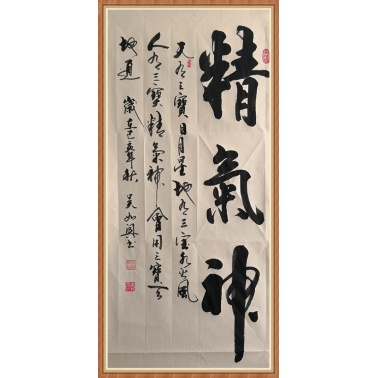 精氣神
天有三寶日月星地有三宝水火風
人有三寶精氣神會用三寶天
地通 歲在己亥年秋 吴如書